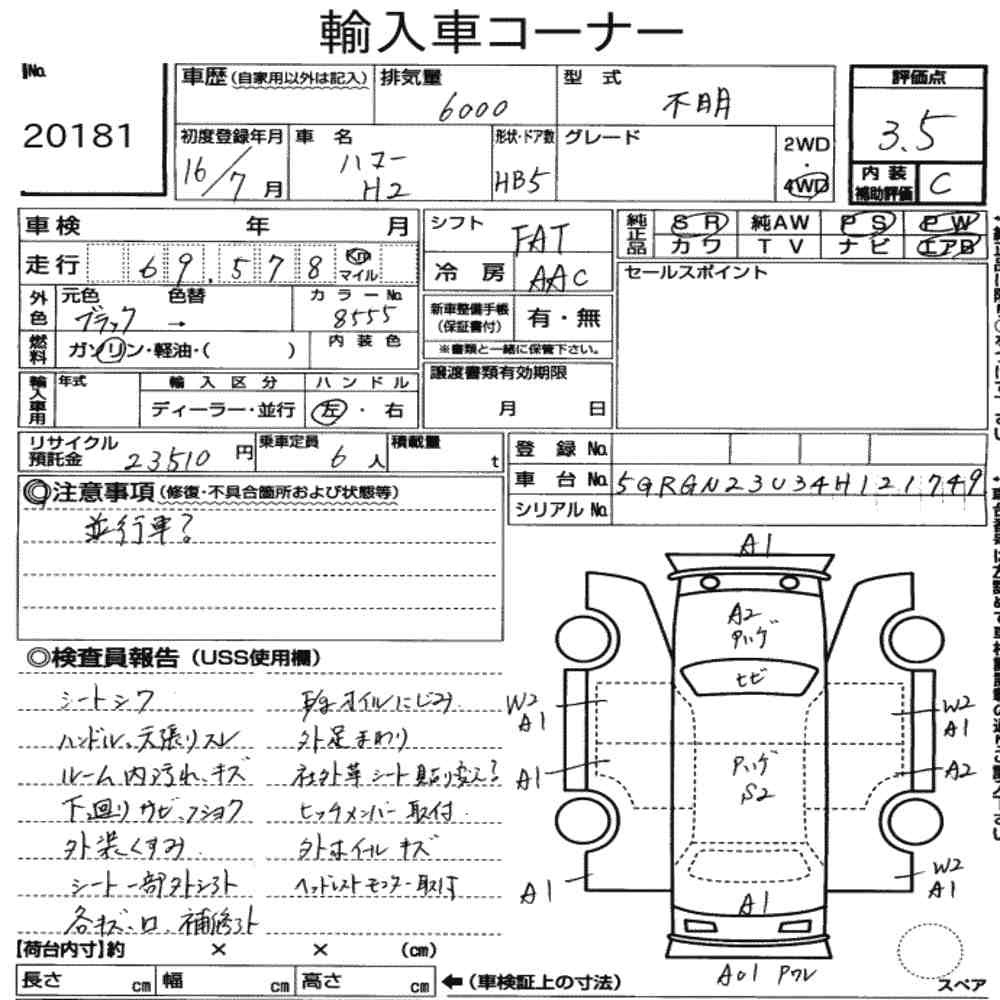 輸入車コーナー
No.
20181
車歴(自家用以外は記入)
排気量
6000
型式
不明
評価点
3.5
初度登録年月
16/7月
車名
ハマー
H2
形状・ドア数
HB5
グレード
2WD
・
4WD
内装
補助評価
C
車検 年 月
走行 69,578 Km マイル
外色
元色 色替
ブラック →
カラーNo.
8555
燃料
ガソリン・軽油・( )
内装色
輸入車用
年式
輸入区分
ディーラー・並行
ハンドル
左・右
シフト
FAT
冷房
AAC
新車整備手帳
(保証書付)
有・無
※書類と一緒に保管下さい。
譲渡書類有効期限
月 日
純正品
SR 純AW PS PW
カワ TV ナビ エアB
セールスポイント
リサイクル
預託金 23510円
乗車定員
6人
積載量
t
登録No.
車台No. 5GRGN23U34H121749
シリアルNo.
◎注意事項(修復・不具合箇所および状態等)
並行車?
◎検査員報告(USS使用欄)
シートシワ
ハンドル、天張りスレ
ルーム内汚れ、キズ
下廻りサビ、フショク
外装くすみ
シート一部外シミト
各キズ・凹、補修ミト
E/gオイルにじみ
外足まわり
社外革シート貼り変え?
ヒッチメンバー取付
外ホイールキズ
ヘッドレストモニター取付
A1
A2
ハゲ
ヒビ
W2
A1
W2
A1
A1
ハゲ
S2
A2
A1
W2
A1
A1
A01 ワレ
スペア
【荷台内寸】約 × × (cm)
長さ cm 幅 cm 高さ cm ←(車検証上の寸法)